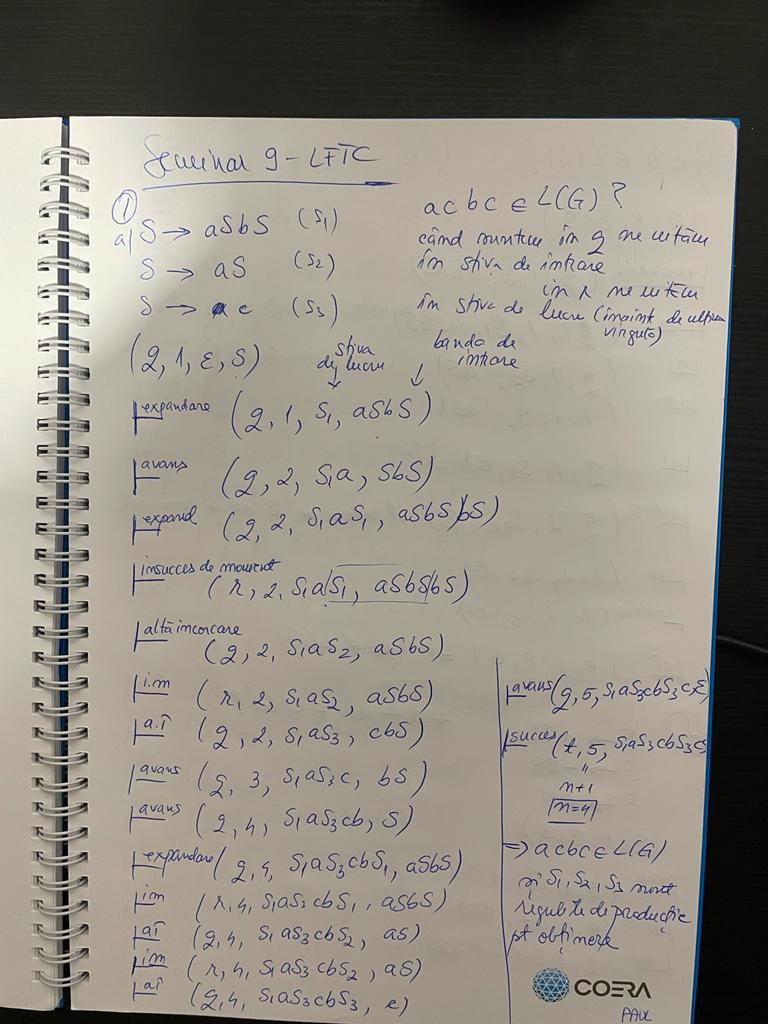 Seminar 9 - LFTC
① a) S → aSbS (S₁)
S → aS (S₂)
S → c (S₃)
acbc ∈ L(G) ?
când suntem în q ne uităm
în stiva de intrare
în r ne uităm
în stiva de lucru (înainte de ultima
virgulă)
(q, 1, ε, S)
stiva
de lucru
banda de
intrare
expandare (q, 1, S₁, aSbS)
avans (q, 2, S₁a, SbS)
expand (q, 2, S₁aS₁, aSbS|bS)
insucces de moment
(r, 2, S₁a|S₁, aSbS|bS)
altă incercare
(q, 2, S₁aS₂, aSbS)
i.m (r, 2, S₁aS₂, aSbS)
a.î (q, 2, S₁aS₃, cbS)
avans (q, 3, S₁aS₃c, bS)
avans (q, 4, S₁aS₃cb, S)
expandare (q, 4, S₁aS₃cbS₁, aSbS)
im (r, 4, S₁aS₃cbS₁, aSbS)
aî (q, 4, S₁aS₃cbS₂, aS)
im (r, 4, S₁aS₃cbS₂, aS)
aî (q, 4, S₁aS₃cbS₃, c)
avans (q, 5, S₁aS₃cbS₃c, ε)
succes (t, 5, S₁aS₃cbS₃c
"
n+1
n=4
=> acbc ∈ L(G)
și S₁, S₂, S₃ sunt
regulile de producție
pt obținere
COERA
PAUL